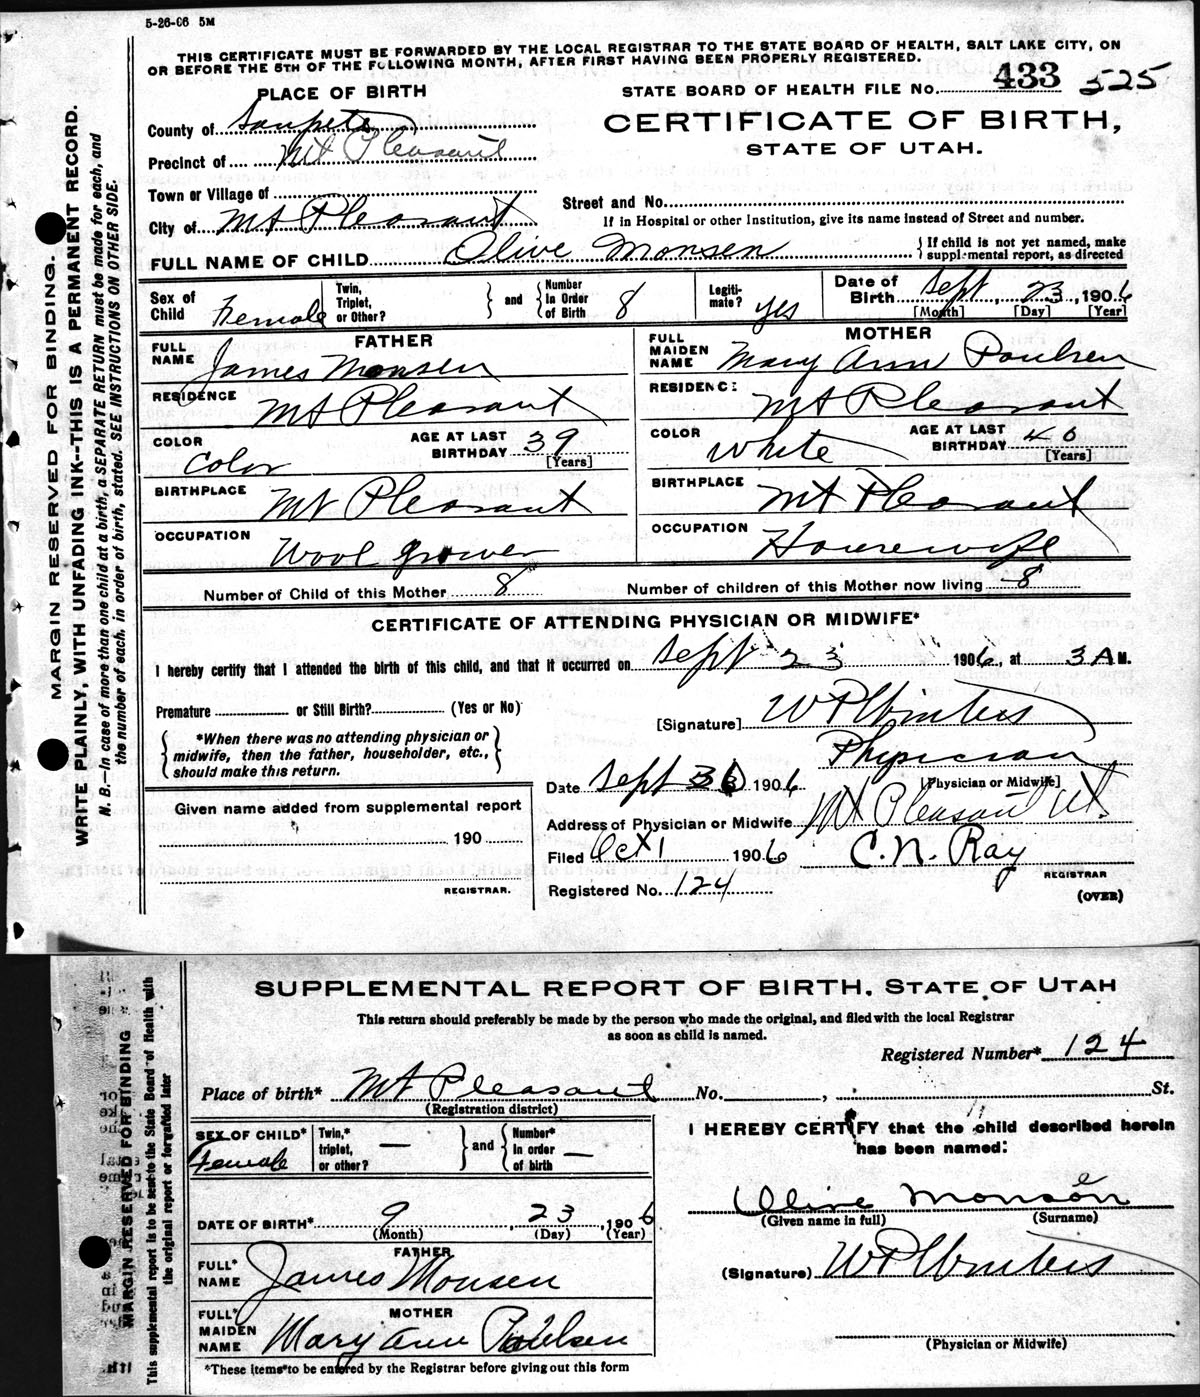 5-26-06 5M
THIS CERTIFICATE MUST BE FORWARDED BY THE LOCAL REGISTRAR TO THE STATE BOARD OF HEALTH, SALT LAKE CITY, ON
OR BEFORE THE 5TH OF THE FOLLOWING MONTH, AFTER FIRST HAVING BEEN PROPERLY REGISTERED.
PLACE OF BIRTH
STATE BOARD OF HEALTH FILE NO. 433 525
County of Sanpete
CERTIFICATE OF BIRTH,
STATE OF UTAH.
Precinct of Mt Pleasant
Town or Village of
Street and No.
City of Mt Pleasant
If in Hospital or other Institution, give its name instead of Street and number.
FULL NAME OF CHILD Olive Monsen
{ If child is not yet named, make
supplemental report, as directed
Sex of Child Female
Twin, Triplet, or Other?
and
Number In Order of Birth 8
Legitimate? yes
Date of Birth Sept, 23, 1906
[Month] [Day] [Year]
FATHER
MOTHER
FULL NAME James Monsen
FULL MAIDEN NAME Mary Ann Poulsen
RESIDENCE Mt Pleasant
RESIDENCE Mt Pleasant
COLOR Color
AGE AT LAST BIRTHDAY 39
[Years]
COLOR White
AGE AT LAST BIRTHDAY 40
[Years]
BIRTHPLACE Mt Pleasant
BIRTHPLACE Mt Pleasant
OCCUPATION Wool grower
OCCUPATION Housewife
Number of Child of this Mother 8
Number of children of this Mother now living 8
CERTIFICATE OF ATTENDING PHYSICIAN OR MIDWIFE*
I hereby certify that I attended the birth of this child, and that it occurred on Sept 23 1906, at 3 A M.
Premature or Still Birth? (Yes or No)
[Signature] W P Winters
Physician
[Physician or Midwife]
{ *When there was no attending physician or
midwife, then the father, householder, etc.,
should make this return. }
Date Sept 30 1906
Address of Physician or Midwife Mt Pleasant Ut.
Given name added from supplemental report
190
REGISTRAR.
Filed Oct 1 1906
C. N. Ray
REGISTRAR
Registered No. 124
(OVER)
MARGIN RESERVED FOR BINDING.
WRITE PLAINLY, WITH UNFADING INK--THIS IS A PERMANENT RECORD.
N. B.—In case of more than one child at a birth, a SEPARATE RETURN must be made for each, and
the number of each, in order of birth, stated. SEE INSTRUCTIONS ON OTHER SIDE.
SUPPLEMENTAL REPORT OF BIRTH. STATE OF UTAH
This return should preferably be made by the person who made the original, and filed with the local Registrar
as soon as child is named.
Registered Number* 124
Place of birth* Mt Pleasant No. , St.
(Registration district)
SEX OF CHILD* Female
Twin,* triplet, or other? —
and
Number* In order of birth —
I HEREBY CERTIFY that the child described herein
has been named:
Olive Monsen
(Given name in full) (Surname)
DATE OF BIRTH* 9, 23, 1906
(Month) (Day) (Year)
FATHER
FULL* NAME James Monsen
(Signature) W P Winters
MOTHER
FULL* MAIDEN NAME Mary Ann Poulsen
(Physician or Midwife)
*These items to be entered by the Registrar before giving out this form
MARGIN RESERVED FOR BINDING
This supplemental report to be sent to the State Board of Health with
the original report or forwarded later